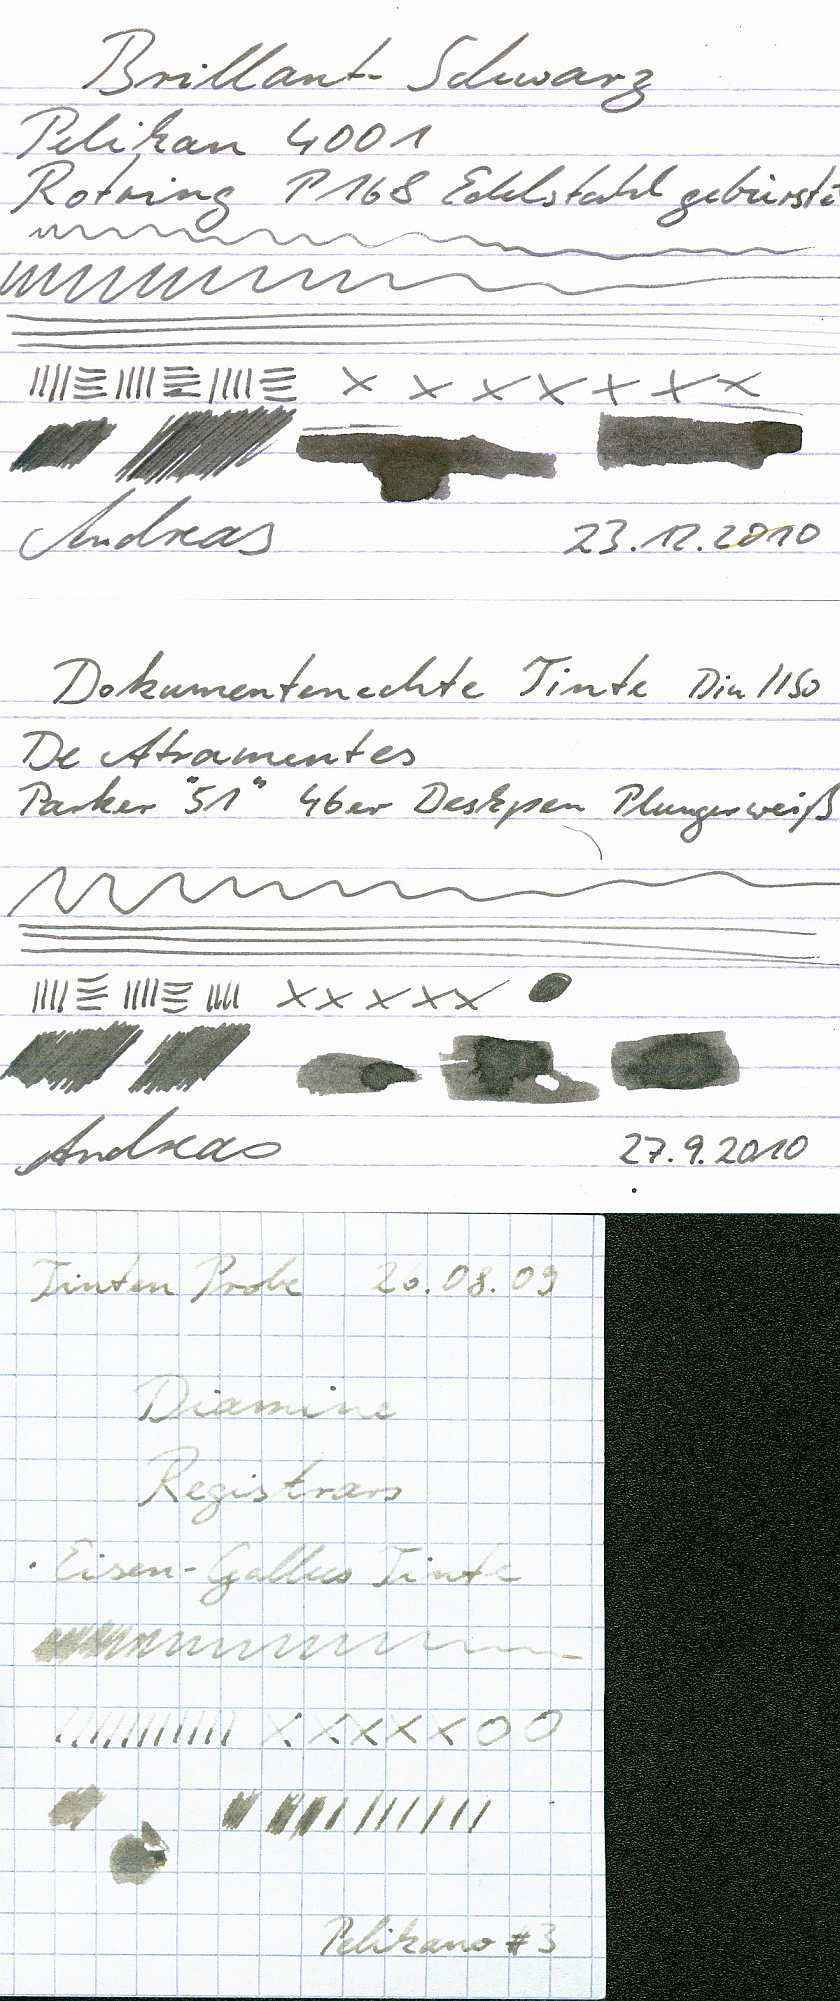 Brillant-Schwarz
Pelikan 4001
Rotring P168 Edelstahl gebürste
Andreas 23.12.2010
Dokumentenechte Tinte Din 1150
De Atramentes
Parker "51" 46er Deskpen Plungerweiß
Andreas 27.9.2010
Tinten Probe 26.08.09
Diamine
Registrars
Eisen-Gallus Tinte
Pelikano #3